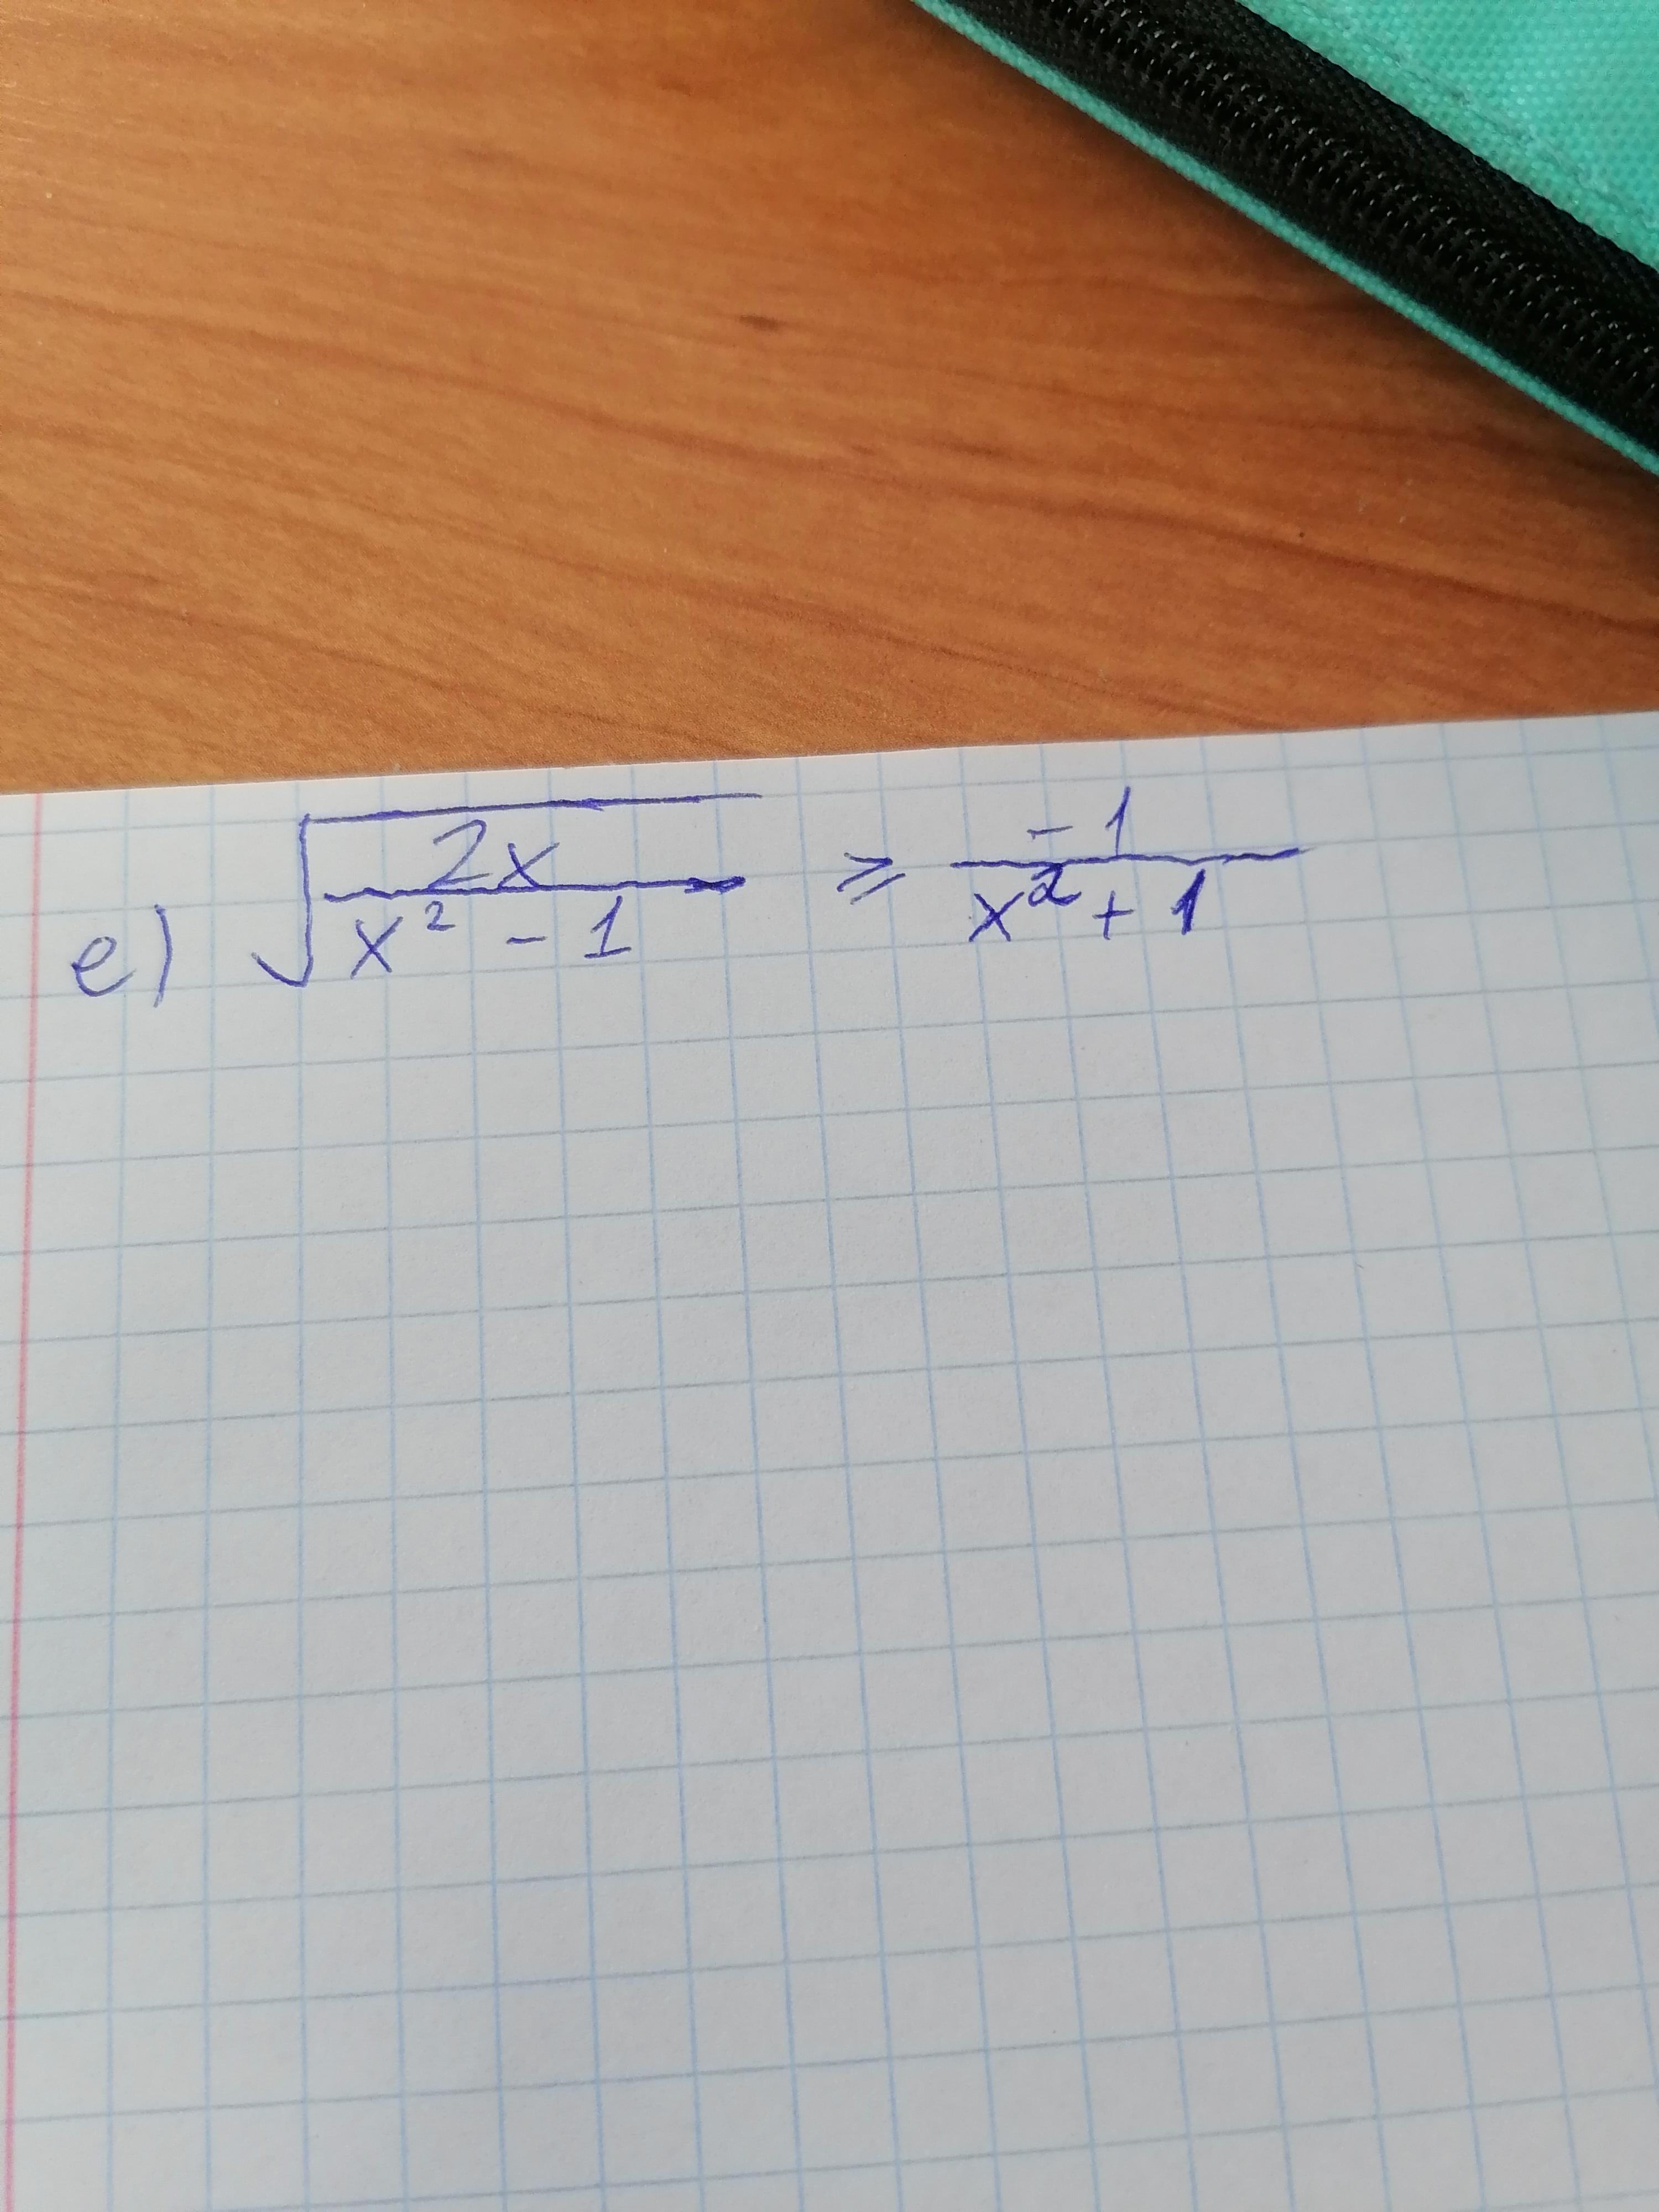 e) √(2x / (x² - 1)) ⩾ -1 / (x² + 1)